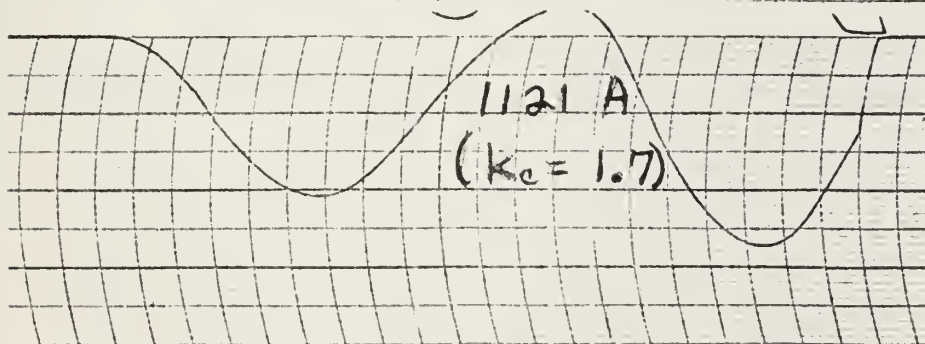 1121 A
(Kc = 1.7)